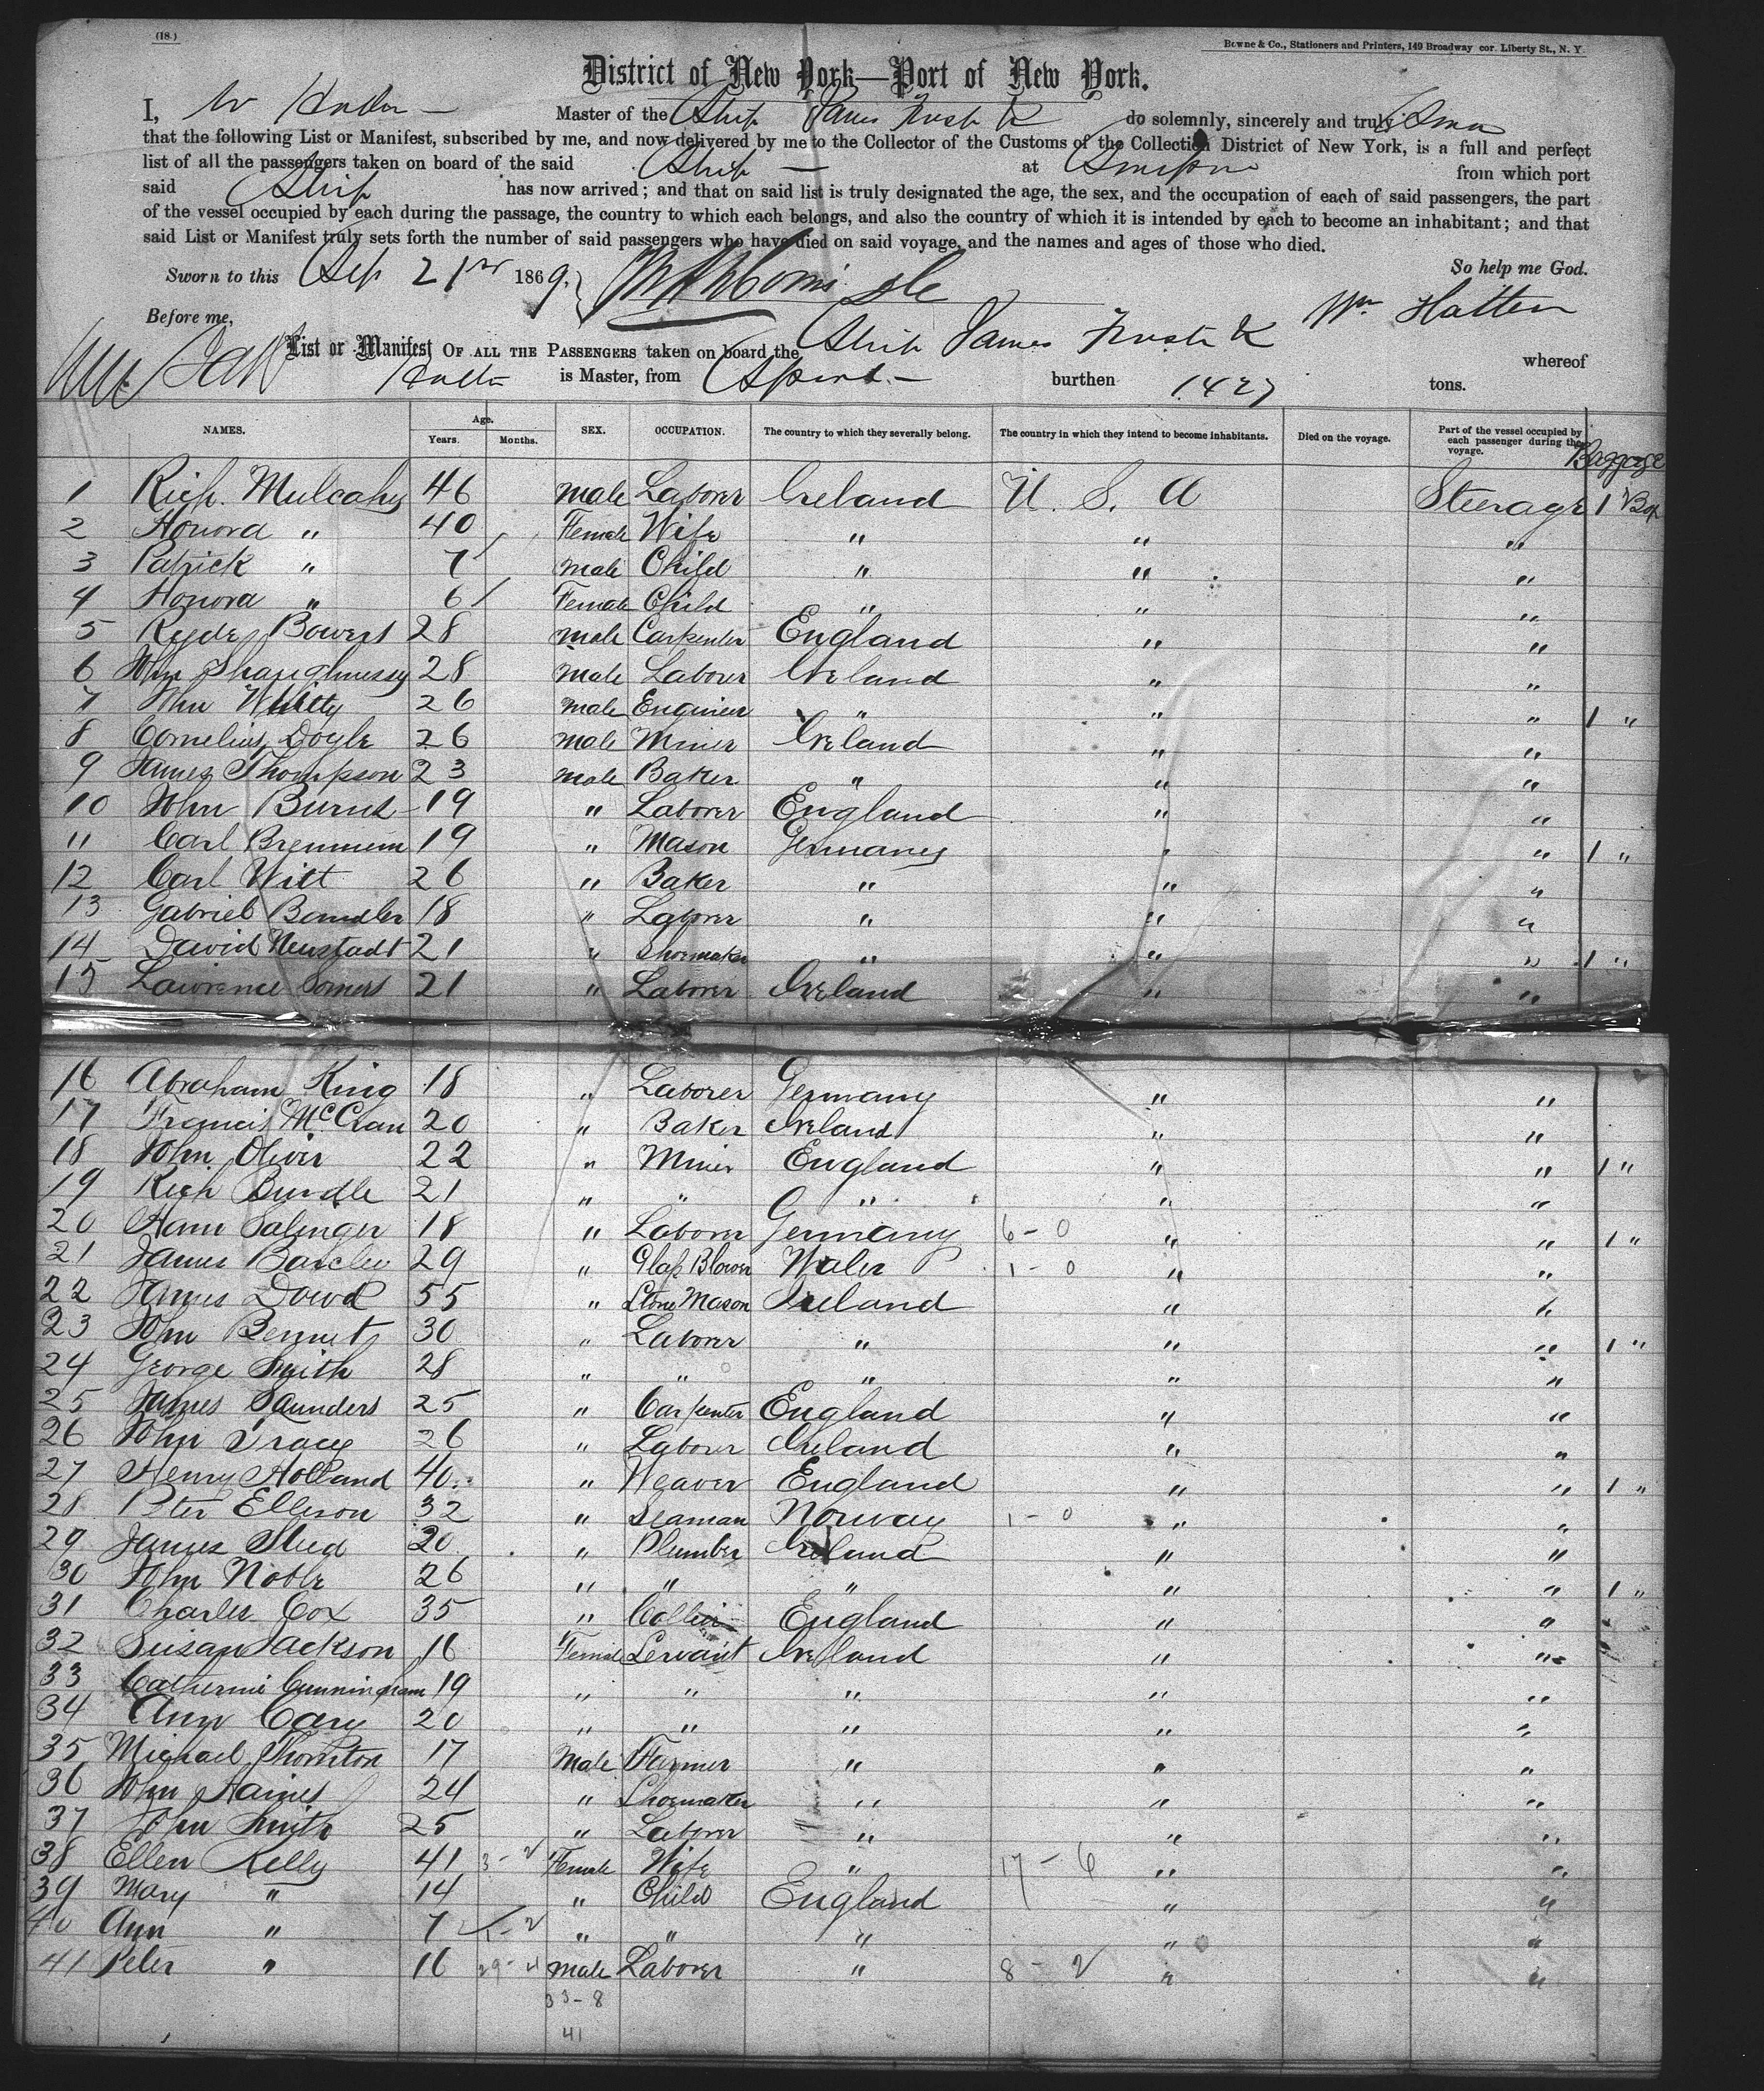 (18.)
Bowne & Co., Stationers and Printers, 149 Broadway cor. Liberty St., N. Y.
District of New York—Port of New York.
I, W Master of the Ship James do solemnly, sincerely and truly
that the following List or Manifest, subscribed by me, and now delivered by me to the Collector of the Customs of the Collection District of New York, is a full and perfect
list of all the passengers taken on board of the said Ship — at from which port
said Ship has now arrived; and that on said list is truly designated the age, the sex, and the occupation of each of said passengers, the part
of the vessel occupied by each during the passage, the country to which each belongs, and also the country of which it is intended by each to become an inhabitant; and that
said List or Manifest truly sets forth the number of said passengers who have died on said voyage, and the names and ages of those who died.
Sworn to this Sep 21st 1869. So help me God.
Before me, Wm Hatten
List or Manifest OF ALL THE PASSENGERS taken on board the Ship James whereof
is Master, from burthen 1427 tons.
NAMES. Age. Years. Months. SEX. OCCUPATION. The country to which they severally belong. The country in which they intend to become inhabitants. Died on the voyage. Part of the vessel occupied by each passenger during the voyage. Baggage
1 Rich. Mulcahy 46 Male Laborer Ireland U. S. A Steerage 1 Box
2 Honora " 40 Female Wife " " "
3 Patrick " 7 Male Child " " "
4 Honora " 6 Female Child " " "
5 Bowers 28 Male Carpenter England " "
6 Shaughnessy 28 Male Laborer Ireland " "
7 John Whitty 26 Male Engineer " " " 1 "
8 Cornelius Doyle 26 Male Miner Ireland " "
9 James Thompson 23 Male Baker " " "
10 John Burns 19 " Laborer England " "
11 Carl 19 " Mason Germany " " 1 "
12 Carl Witt 26 " Baker " " "
13 Gabriel Bandler 18 " Laborer " " "
14 David Neustadt 21 " Shoemaker " " " 1 "
15 Lawrence Somers 21 " Laborer Ireland " "
16 Abraham King 18 " Laborer Germany " "
17 Francis 20 " Baker Ireland " "
18 John Oliver 22 " Miner England " " 1 "
19 Rich Bundle 21 " " " " "
20 Salinger 18 " Laborer Germany 6 - 0 " " 1 "
21 James 29 " Glass Blower Wales 1 - 0 " "
22 James Dowd 55 " Stone Mason Ireland " "
23 John Bennet 30 " Laborer " " " 1 "
24 George Smith 28 " " " " "
25 James Saunders 25 " Carpenter England " "
26 John Tracy 26 " Laborer Ireland " "
27 Henry Holland 40 " Weaver England " " 1 "
28 Peter Ellison 32 " Seaman Norway 1 - 0 " "
29 James 20 " Plumber Ireland " "
30 John Noble 26 " " " " " 1 "
31 Charles Cox 35 " Collier England " "
32 Susan Jackson 16 Female Servant Ireland " "
33 Catherine Cunningham 19 " " " " "
34 Ann Cary 20 " " " " "
35 Michael Thornton 17 Male Farmer " " "
36 John Haines 24 " Shoemaker " " "
37 John Smith 25 " Laborer " " "
38 Ellen Kelly 41 3 - 2 Female Wife " 17 - 6 " "
39 Mary " 14 " Child England " "
40 Ann " 7 " " " " "
41 Peter " 16 29 - 4 Male Laborer " 8 - 2 " "
33 - 8
41